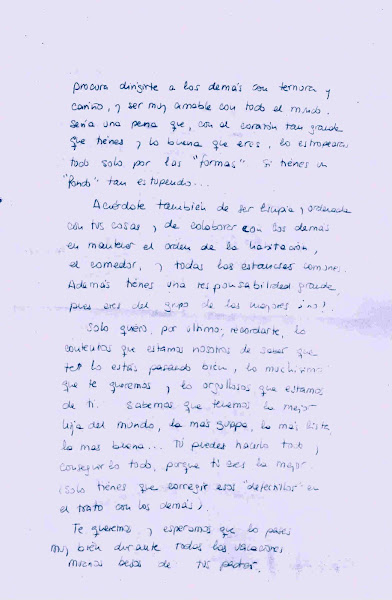 procura dirigirte a los demás con ternura y
cariño, y ser muy amable con todo el mundo.
Sería una pena que, con el corazón tan grande
que tienes y lo buena que eres, lo estropearas
todo solo por las "formas". Si tienes un
"fondo" tan estupendo...
Acuérdate también de ser limpia y ordenada
con tus cosas, y de colaborar con los demás
en mantener el orden de la habitación,
el comedor, y todas las estancias comunes.
Además tienes una responsabilidad grande,
pues eres del grupo de las mayores ¿no?
Solo quiero, por último, recordarte, lo
contentos que estamos nosotros de saber que
lo estás pasando bien, lo muchísimo
que te queremos y lo orgullosos que estamos
de ti. Sabemos que tenemos la mejor
hija del mundo, la más guapa, la más lista,
la mas buena... Tú puedes hacerlo todo y
conseguirlo todo, porque tú eres la mejor.
(Solo tienes que corregir esos "defectillos" en
el trato con los demás).
Te queremos y esperamos que lo pases
muy bien durante todas las vacaciones
Muchos besos de tus padres.